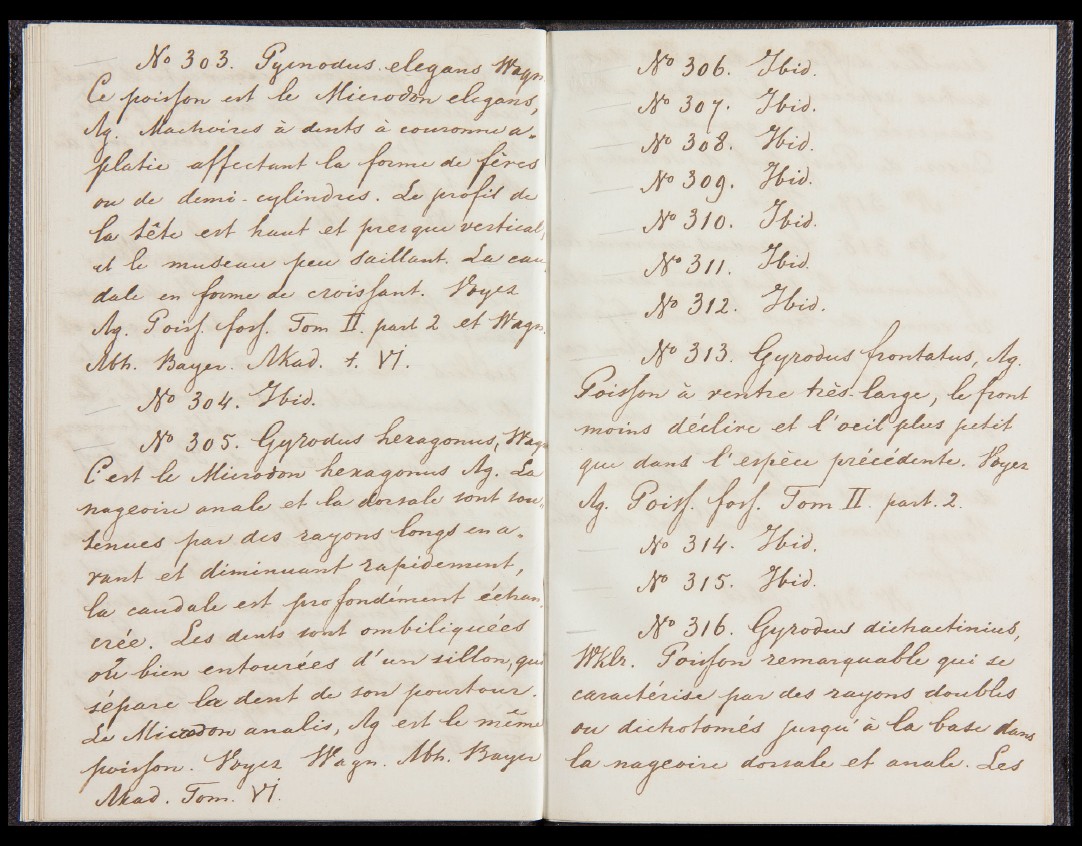 No 303. Pycnodus elegans Wagn
Ce poisson est le Microdon elegans,
Ag. Machoires à dents à couronne a-
platie affectant la forme de fèves
ou de demi-cylindres. Le profil de
la tête est haut et presque vertical,
et le museau peu saillant. La cau-
dale en forme de croissant. Voyez
Ag. Poiss. foss. Tom II. part 2 et Wagn.
Abh. Bayer. Akad. t. VI.
No 304. Ibid.
No 305. Gyrodus hexagonus, Wagn
C'est le Microdon hexagonus Ag. La
nageoire anale et la dorsale sont sou-
tenues par des rayons longs en a-
vant et diminuant rapidement,
la caudale est profondément échan-
crée. Les dents sont ombiliquées
ou bien entourées d'un sillon, qui
sépare la dent de son pourtour.
Le Microdon analis, Ag est le même
poisson. Voyez Wagn. Abh. Bayer
Akad. Tom. VI.
No 306. Ibid.
No 307. Ibid.
No 308. Ibid.
No 309. Ibid.
No 310. Ibid.
No 311. Ibid.
No 312. Ibid.
No 313. Gyrodus frontatus, Ag.
Poisson à ventre très-large, le front
moins déclive et l'oeil plus petit
que dans l'espèce précédente. Voyez
Ag. Poiss. foss. Tom II. part. 2.
No 314. Ibid.
No 315. Ibid.
No 316. Gyrodus dichactinius,
Wklr. Poisson remarquable qui se
caractérise par des rayons doubles
ou dichotomés jusqu'à la base dans
la nageoire dorsale et anale. Les